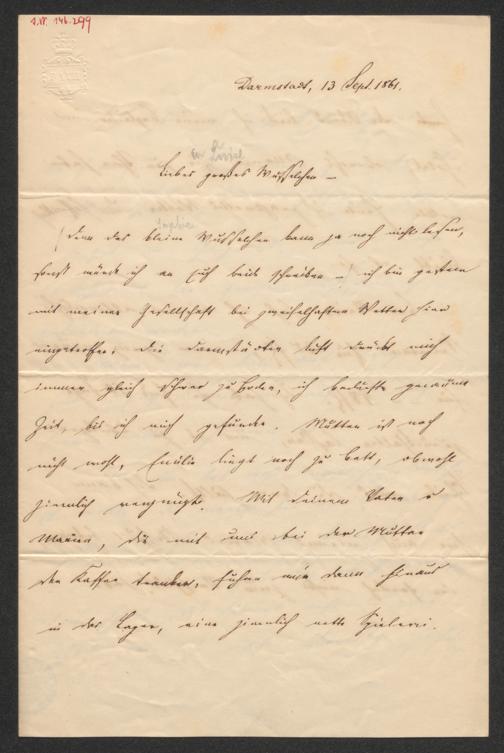 A.IV. 146.299
Darmstadt, 13 Sept. 1861.
an Luise
Liebes großes Wusselchen –
(denn das kleine Wusselchen kann ja noch nicht lesen,
sonst würde ich an Euch beide schreiben –) ich bin gestern
mit meiner Gesellschaft bei zweifelhaftem Wetter hier
eingetroffen. Die Darmstädter Luft drückt mich
immer gleich schwer zu Boden, ich bedurfte geraume
Zeit, bis ich mich gefunden. Mutter ist noch
nicht wohl, Emilie liegt noch zu Bett, obwohl
ziemlich vergnügt. Mit Deinem Vater u
Marien, die mit uns bei der Mutter
den Kaffee tranken, fuhren wir dann hinaus
in das Lager, eine ziemlich nette Spielerei.